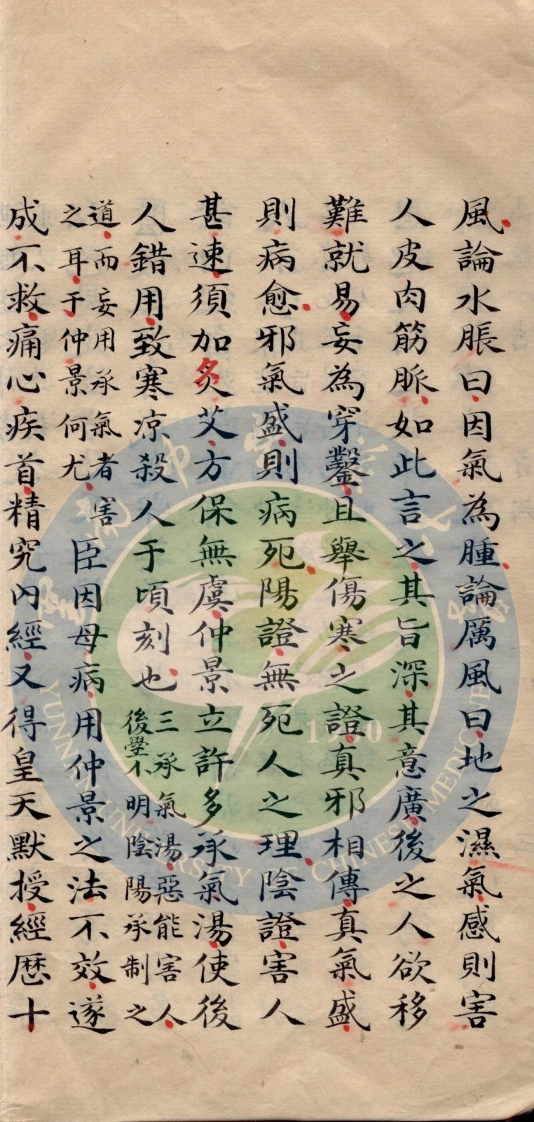 風論水脹曰因氣為腫論厲風曰地之濕氣感則害
人皮肉筋脈如此言之其旨深其意廣後之人欲移
難就易妄為穿鑿且舉傷寒之證真邪相傳真氣盛
則病愈邪氣盛則病死陽證無死人之理陰證害人
甚速須加灸艾方保無虞仲景立許多承氣湯使後
人錯用致寒凉殺人于頃刻也三承氣湯惡能害人
後學不明陰陽承制之
道而妄用承氣者害
之耳于仲景何尤
臣因母病用仲景之法不效遂
成不救痛心疾首精究內經又得皇天默授經歷十
YUNNAN UNIVERSITY
CHINESE MEDICINE